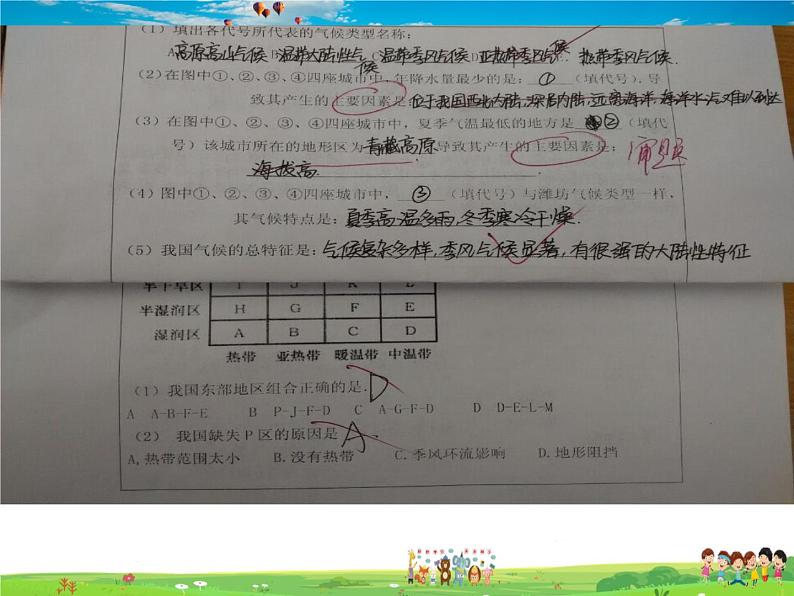 (1) 填出各代号所代表的气候类型名称：
高原高山气候 温带大陆性气候 温带季风气候 亚热带季风气候 热带季风气候.
(2)在图中①、②、③、④四座城市中,年降水量最少的是: ① (填代号),导
致其产生的主要因素是 位于我国西北内陆,深居内陆,远离海洋,海洋水汽难以到达
(3) 在图中①、②、③、④四座城市中，夏季气温最低的地方是 ② (填代
号) 该城市所在的地形区为 青藏高原 导致其产生的主要因素是: 审题
海拔高
(4)图中①、②、③、④四座城市中, ③ (填代号) 与潍坊气候类型一样,
其气候特点是: 夏季高温多雨,冬季寒冷干燥.
(5) 我国气候的总特征是: 气候复杂多样,季风气候显著,有很强的大陆性特征
半干旱区 I J K L
半湿润区 H G F E
湿润区 A B C D
热带 亚热带 暖温带 中温带
(1) 我国东部地区组合正确的是. D
A A-B-F-E B P-J-F-D C A-G-F-D D D-E-L-M
(2) 我国缺失P区的原因是 A
A,热带范围太小 B.没有热带 C.季风环流影响 D.地形阻挡